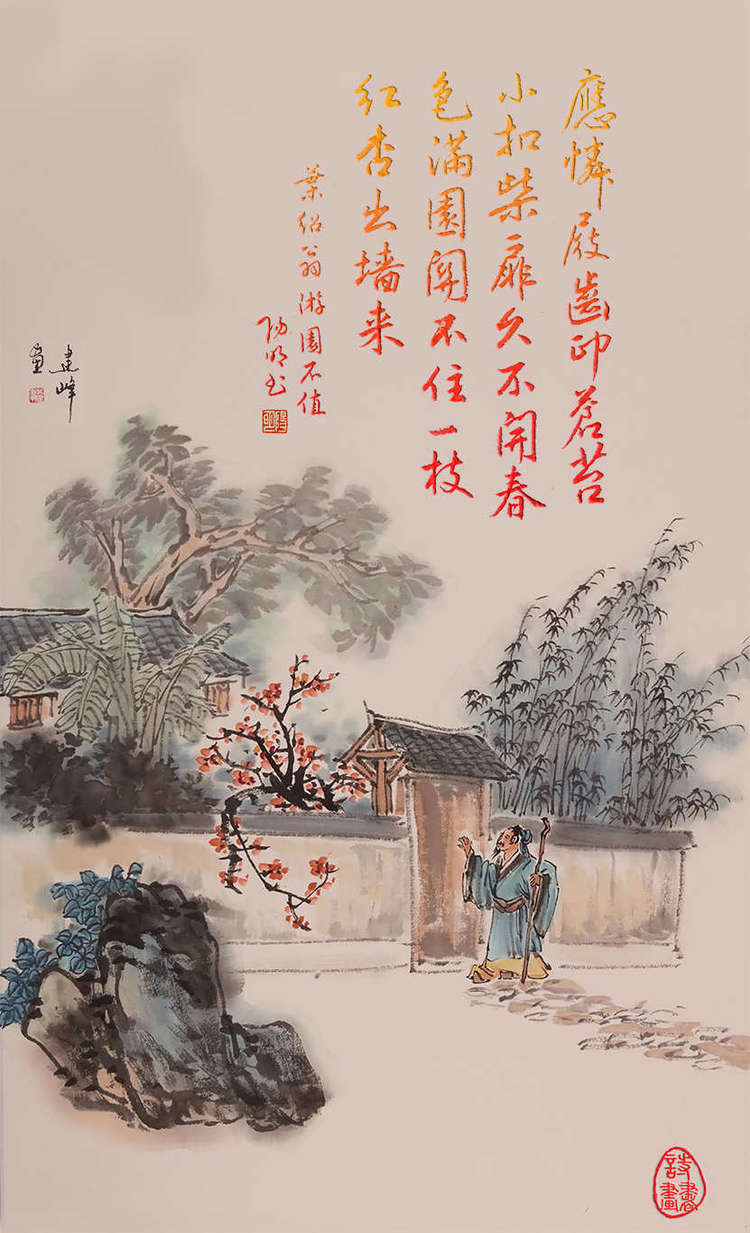 應憐屐齒印蒼苔
小扣柴扉久不開春
色滿園關不住一枝
红杏出墙来
葉绍翁游園不值
阳明书
建峰
畫
詩書畫